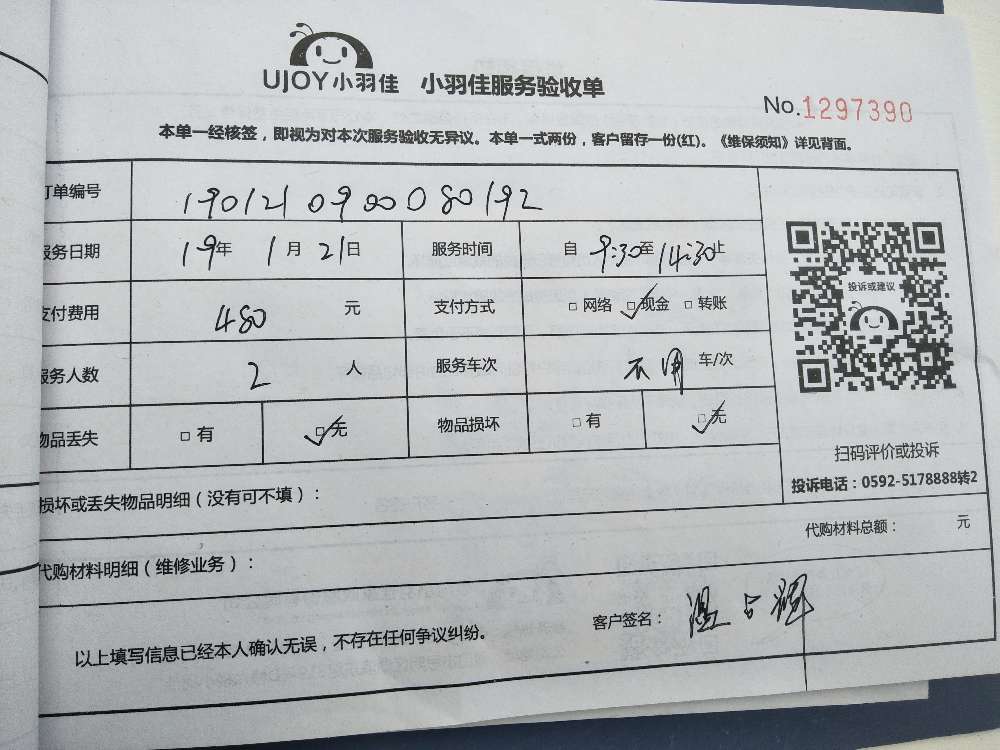 UJOY小羽佳 小羽佳服务验收单
No.1297390
本单一经核签，即视为对本次服务验收无异议。本单一式两份，客户留存一份(红)。《维保须知》详见背面。
订单编号 190121090080192
服务日期 19年 1月 21日 服务时间 自 9:30至 14:30止
支付费用 480 元 支付方式 □ 网络 ☑ 现金 □ 转账
服务人数 2 人 服务车次 不用 车/次
物品丢失 □ 有 ☑ 无 物品损坏 □ 有 ☑ 无
投诉或建议
扫码评价或投诉
投诉电话：0592-5178888转2
损坏或丢失物品明细（没有可不填）：
代购材料明细（维修业务）： 代购材料总额： 元
以上填写信息已经本人确认无误，不存在任何争议纠纷。 客户签名： 温占辉